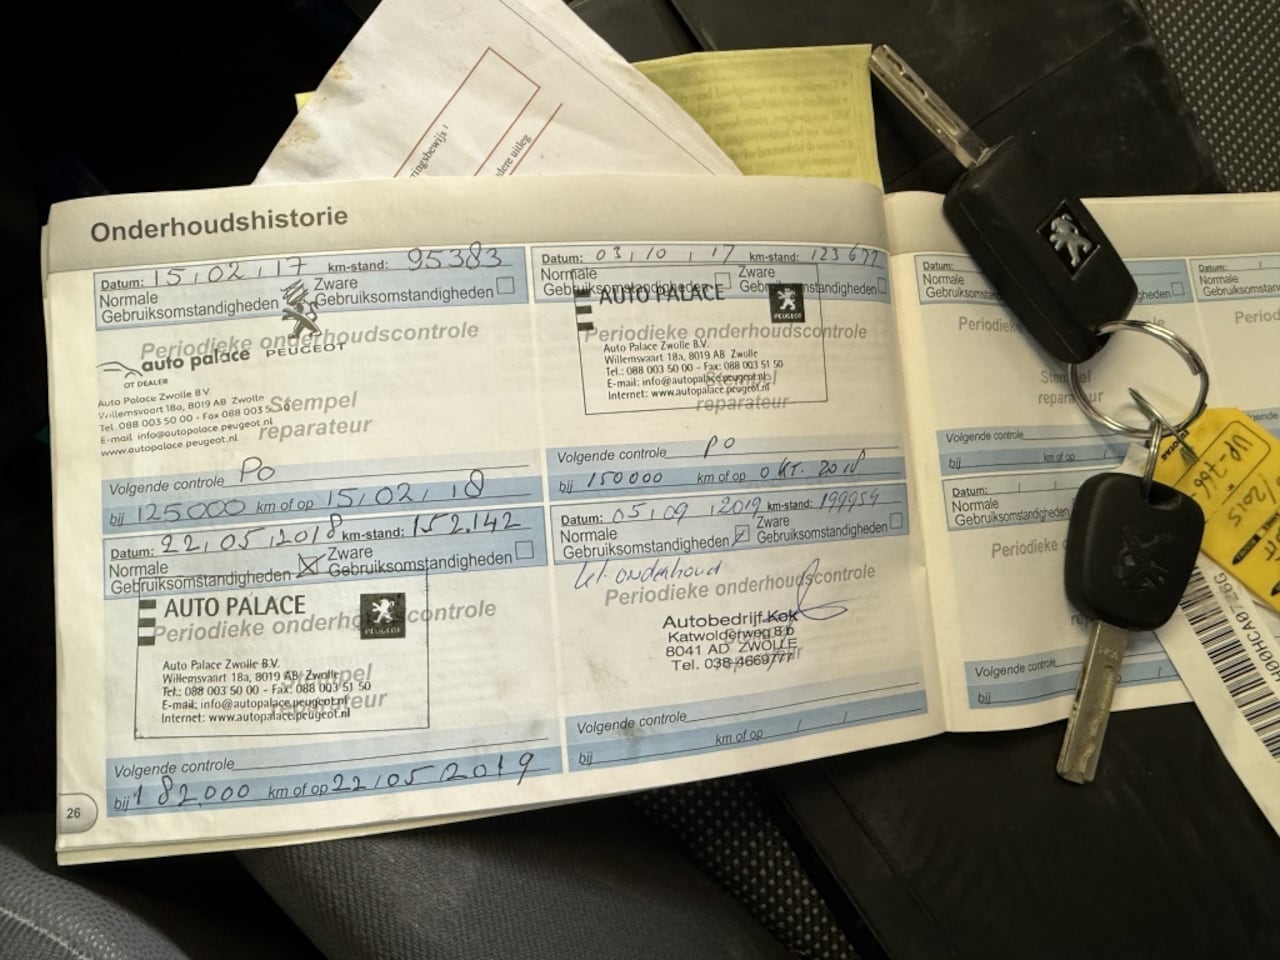 Onderhoudshistorie
Datum: 15,02,17 km-stand: 95383
Normale Gebruiksomstandigheden
Zware Gebruiksomstandigheden
Periodieke onderhoudscontrole
PEUGEOT
auto palace
Auto Palace Zwolle B.V.
Willemsvaart 18a, 8019 AB Zwolle
Tel. 088 003 50 00 - Fax 088 003 5
E-mail info@autopalace.peugeot.nl
www.autopalace.peugeot.nl
Stempel
reparateur
Volgende controle PO
bij 125000 km of op 15,02,18
Datum: 03,10,17 km-stand:
Normale Gebruiksomstandigheden
Zware Gebruiksomstandigheden
AUTO PALACE
PEUGEOT
Periodieke onderhoudscontrole
Auto Palace Zwolle B.V.
Willemsvaart 18a, 8019 AB Zwolle
Tel.: 088 003 50 00 - Fax: 088 003 51 50
E-mail: info@autopalace.peugeot.nl
Internet: www.autopalace.peugeot.nl
Stempel
reparateur
Volgende controle PO
bij 150000 km of op OKT. 2018
Datum: 22,05,2018 km-stand: 152.142
Normale Gebruiksomstandigheden
Zware Gebruiksomstandigheden
AUTO PALACE
PEUGEOT
Periodieke onderhoudscontrole
Auto Palace Zwolle B.V.
Willemsvaart 18a, 8019 AB Zwolle
Tel.: 088 003 50 00 - Fax: 088 003 51 50
E-mail: info@autopalace.peugeot.nl
Internet: www.autopalace.peugeot.nl
Stempel
reparateur
Volgende controle
bij 182.000 km of op 22/05/2019
26
Datum: 05,09,2019 km-stand: 199959
Normale Gebruiksomstandigheden
Zware Gebruiksomstandigheden
onderhoud
Periodieke onderhoudscontrole
Autobedrijf Kok
Katwolderweg 8 b
8041 AD ZWOLLE
Tel. 038-4669777
Volgende controle
bij km of op / /
Datum:
Normale
Gebruiksomstan
Periodieke
Stem
repara ur
Volgende controle
bij km of op
Datum:
Normale
Gebruiksomstandigheden
Periodieke
Volgende controle
bij
Datum:
Normale
Gebruiksomstandigheden
2015